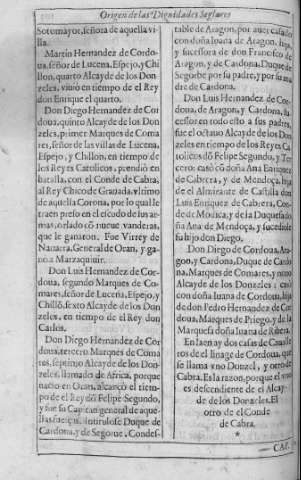 Origen de las Dignidades Seglares
Sotomayor, señora de aquella vi-
lla.
Martin Hernandez de Cordo-
ua, señor de Lucena, Espejo, y Chi
llon, quarto Alcayde de los Don
zeles, viuio en tiempo de el Rey
don Enrique el quarto.
Don Diego Hernandez de Cor
doua, quinto Alcayde de los Don
zeles, primer Marques de Coma
res, señor de las villas de Lucena,
Espejo, y Chillon, en tiempo de
los Reyes Catolicos, prendiò en
batalla, con el Conde de Cabra,
al Rey Chico de Granada, vltimo
de aquella Corona, por lo qual le
traen preso en el escudo de sus ar-
mas, orlado cõ nueue vanderas,
que le ganaron. Fue Virrey de
Nauarra, General de Oran, y ga-
nò a Marzaquiuir.
Don Luis Hernandez de Cor-
doua, segundo Marques de Co-
mares, señor de Lucena, Espejo, y
Chillõ, sexto Alcayde de los Don
zeles, en tiempo de el Rey don
Carlos.
Don Diego Hernandez de Cor
doua, tercero Marques de Coma
res, septimo Alcayde de los Don-
zeles, llamado de Africa, porque
nacio en Oran, alcançò el tiem-
po de el Rey dõ Felipe Segundo,
y fue su Capitan general de aque-
llas fuerças, intitulose Duque de
Cardona, y de Segorue, Condes-
table de Aragon, por auer casado
con doña Juana de Aragon, hija,
y sucessora de don Francisco de
Aragon, y de Cardona, Duque de
Segorbe por su padre, y por su ma
dre de Cardona.
Don Luis Hernandez de Cor-
doua, de Aragon, y Cardona, su-
cessor en todo esto a sus padres,
fue el octauo Alcayde de los Don
zeles en tiempo de los Reyes Ca-
tolicos dõ Felipe Segundo, y Ter
cero: casò cõ doña Ana Enriquez
de Cabrera, y de Mendoza, hija
de el Almirante de Castilla don
Luis Enriquez de Cabrera, Con-
de de Modica, y de la Duquesa do
ña Ana de Mendoça, y sucediole
su hijo don Diego.
Don Diego de Cordoua, Ara-
gon, y Cardona, Duque de Cardo
na, Marques de Comares, y nono
Alcayde de los Donzeles: casò
con doña Juana de Cordoua, hija
de don Pedro Hernandez de Cor
doua, Marques de Priego, y de la
Marquesa doña Juana de Ribera.
En Jaen ay dos casas de Caualle
ros de el linage de Cordoua, que
se llama vno Donzel, y otro de
Cabra. Es la razon, porque el vno
es descendiente de el Alcay-
de de los Donzeles. El
otro de el Conde
de Cabra.
*
CAP.